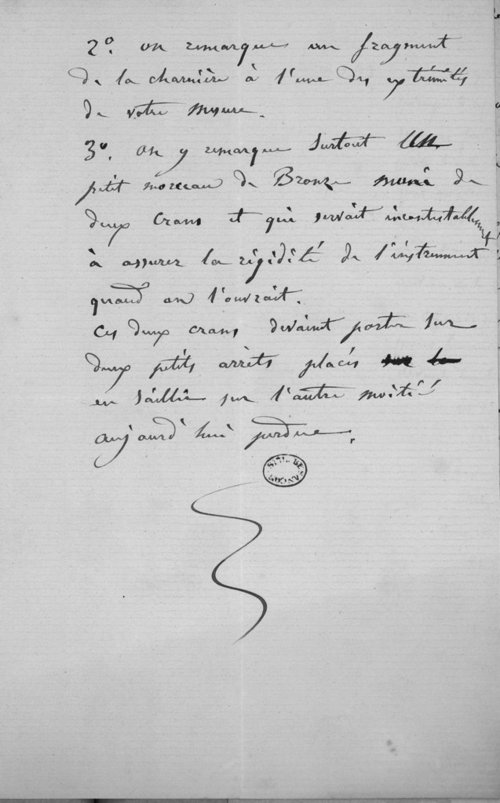 2º. on remarque un fragment
de la charnière à l'une des extrémités
de votre mesure.
3º. on y remarque surtout un
petit morceau de Bronze muni de
deux crans et qui servait incontestablement
à assurer la rigidité de l'instrument
quand on l'ouvrait.
ces deux crans devaient porter sur
deux petits arrêts placés sur le
en saillie sur l'autre moitié
aujourd'hui perdue.